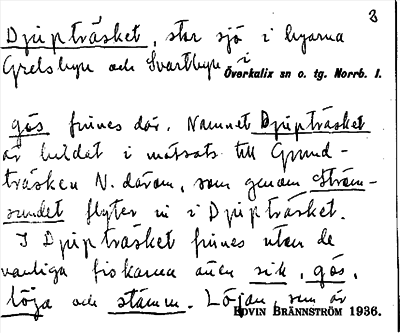 3
Djupträsket, stor sjö i byarna
Grelsbyn och Svartbyn i
Överkalix sn o. tg. Norrb. l.
gös finnes där. Namnet Djupträsket
är bildat i motsats till Grund-
träsken N. därom, som genom Ström-
sundet flyter in i Djupträsket.
I Djupträsket finnes utom de
vanliga fiskarna även sik, gös,
löja och stämm. Löjan, som är
EDVIN BRÄNNSTRÖM 1936.